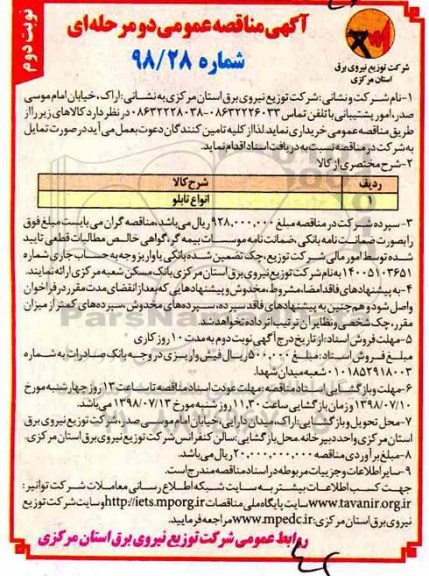 آگهی مناقصه عمومی دو مرحله ای
شماره ۹۸/۲۸
نوبت دوم
شرکت توزیع نیروی برق
استان مرکزی
۱-نام شرکت و نشانی: شرکت توزیع نیروی برق استان مرکزی به نشانی: اراک، خیابان امام موسی
صدر، امور پشتیبانی با تلفن تماس ۰۸۶۳۲۲۲۶۰۳۳-۰۸۶۳۲۲۲۸۰۳۸ در نظر دارد کالاهای زیر را از
طریق مناقصه عمومی خریداری نماید. لذا از کلیه تامین کنندگان دعوت بعمل می آید در صورت تمایل
به شرکت در مناقصه نسبت به دریافت اسناد اقدام نماید.
۲-شرح مختصری از کالا
ردیف شرح کالا
۱ انواع تابلو
۳- سپرده شرکت در مناقصه مبلغ ۹۲۸,۰۰۰,۰۰۰ ریال می باشد، مناقصه گران می بایست مبلغ فوق
را بصورت ضمانت نامه بانکی، ضمانت نامه موسسات بیمه گر، گواهی خالص مطالبات قطعی تایید
شده توسط امور مالی شرکت توزیع، چک تضمین شده بانکی یا واریز وجه به حساب جاری شماره
۱۴۰۰۵۱۰۳۶۵۱ به نام شرکت توزیع نیروی برق استان مرکزی بانک مسکن شعبه مرکزی ارائه نمایند.
۴- به پیشنهادهای فاقد امضا، مشروط، مخدوش و پیشنهادهایی که بعد از انقضای مدت مقرر در فراخوان
واصل شود و هم چنین به پیشنهادهای فاقد سپرده، سپرده های مخدوش، سپرده های کمتر از میزان
مقرر، چک شخصی و نظایر آن ترتیب اثر داده نخواهد شد.
۵-مهلت فروش اسناد: از تاریخ درج آگهی نوبت دوم به مدت ۱۰ روز کاری
مبلغ فروش اسناد: مبلغ ۵۰۰,۰۰۰ ریال فیش واریزی در وجه بانک صادرات به شماره
۰۱۰۱۸۵۲۹۱۸۰۰۳ شعبه میدان شهدا.
۶- مهلت و بازگشایی اسناد مناقصه: مهلت عودت اسناد مناقصه تا ساعت ۱۳ روز چهارشنبه مورخ
۱۳۹۸/۰۷/۱۰ و زمان بازگشایی ساعت ۱۱,۳۰ روز شنبه مورخ ۱۳۹۸/۰۷/۱۳ می باشد.
۷- محل تحویل و بازگشایی: اراک، میدان دارایی، خیابان امام موسی صدر، شرکت توزیع نیروی برق
استان مرکزی واحد دبیرخانه محل بازگشایی: سالن کنفرانس شرکت توزیع نیروی برق استان مرکزی.
۸-مبلغ برآوردی مناقصه ۲۰,۰۰۰,۰۰۰,۰۰۰ ریال می باشد.
۹-سایر اطلاعات و جزییات مربوطه در اسناد مناقصه مندرج است.
جهت کسب اطلاعات بیشتر به سایت شبکه اطلاع رسانی معاملات شرکت توانیر:
www.tavanir.org.ir سایت پایگاه ملی مناقصات http://iets.mporg.ir وسایت شرکت توزیع
نیروی برق استان مرکزی: www.mpedc.ir مراجعه فرمایید.
روابط عمومی شرکت توزیع نیروی برق استان مرکزی